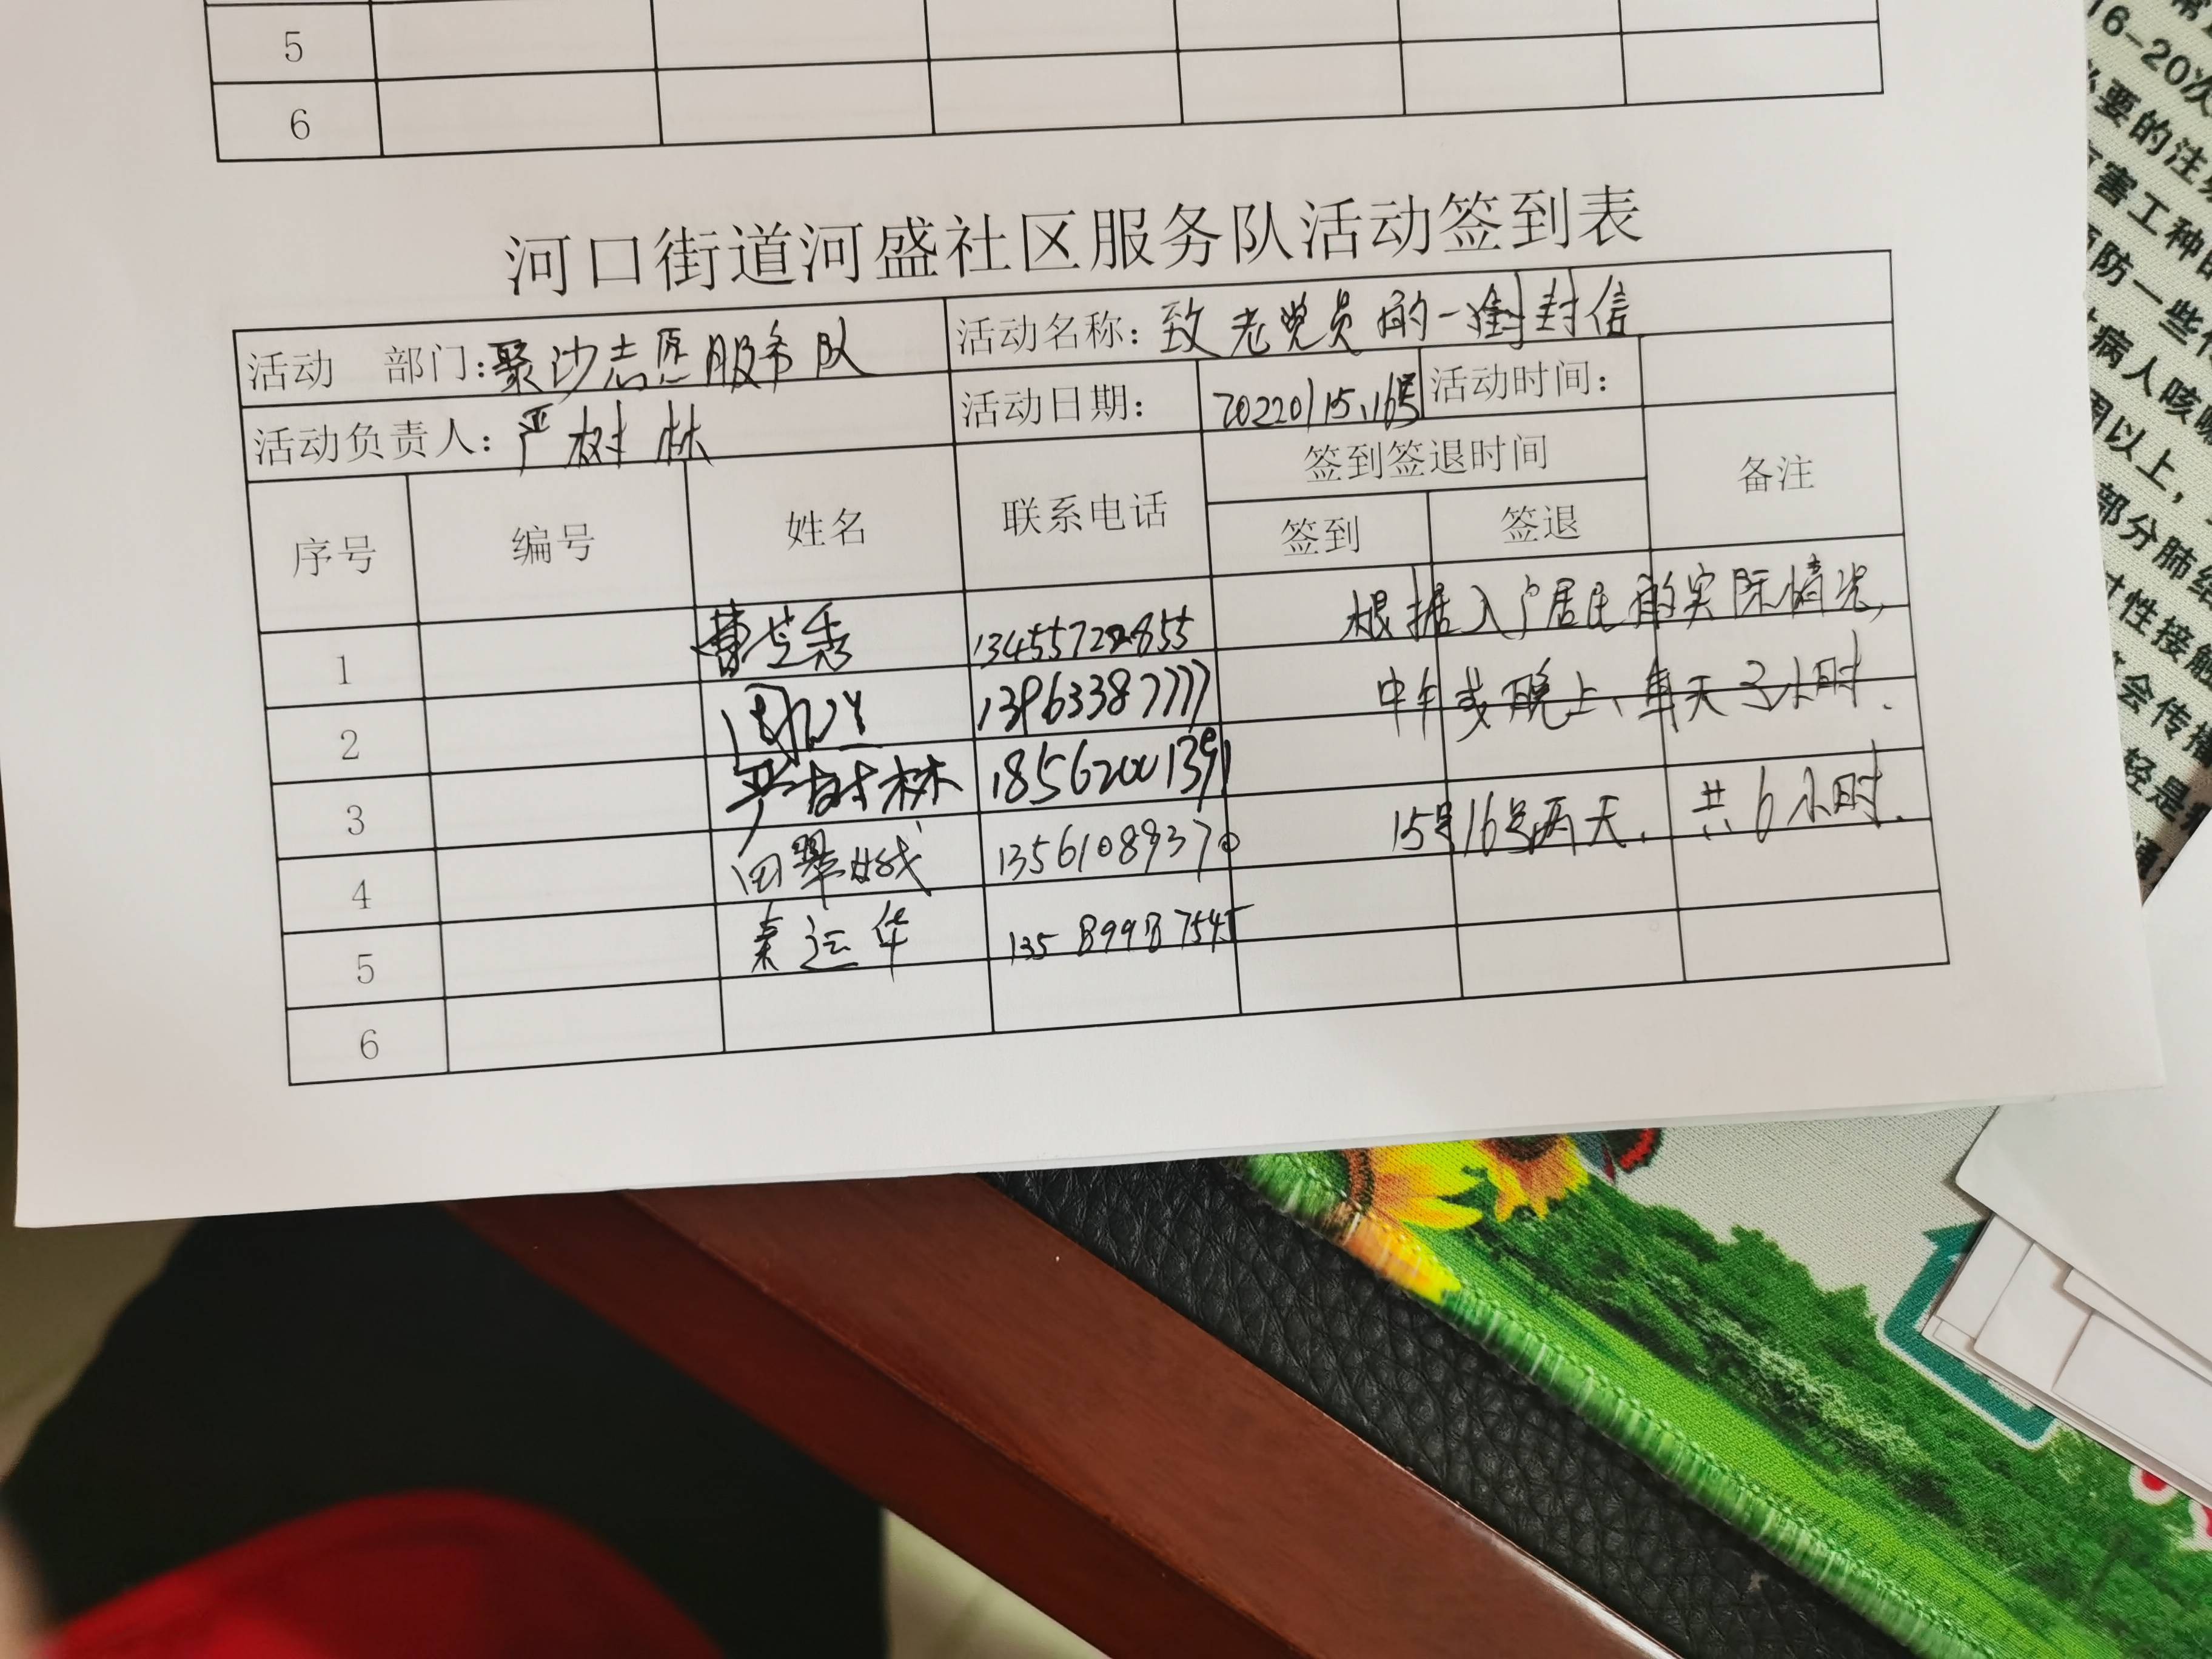 5
6
河口街道河盛社区服务队活动签到表
活动 部门:聚沙志愿服务队 活动名称:致老党员的一封信
活动负责人:严树林 活动日期: 20220115、16号 活动时间:
序号 编号 姓名 联系电话 签到签退时间 备注
签到 签退
1 曹兰秀 13455722855 根据入户居民的实际情况,
2 13963387777 中午或晚上、每天3小时.
3 严树林 18562001391
4 田翠 13561089370 15号16号两天. 共6小时.
5 秦运华 13589987545
6
16-20次
必要的注
害工种
预防一些
病人咳嗽
周以上,
部分肺结
性接触
会传播
轻是